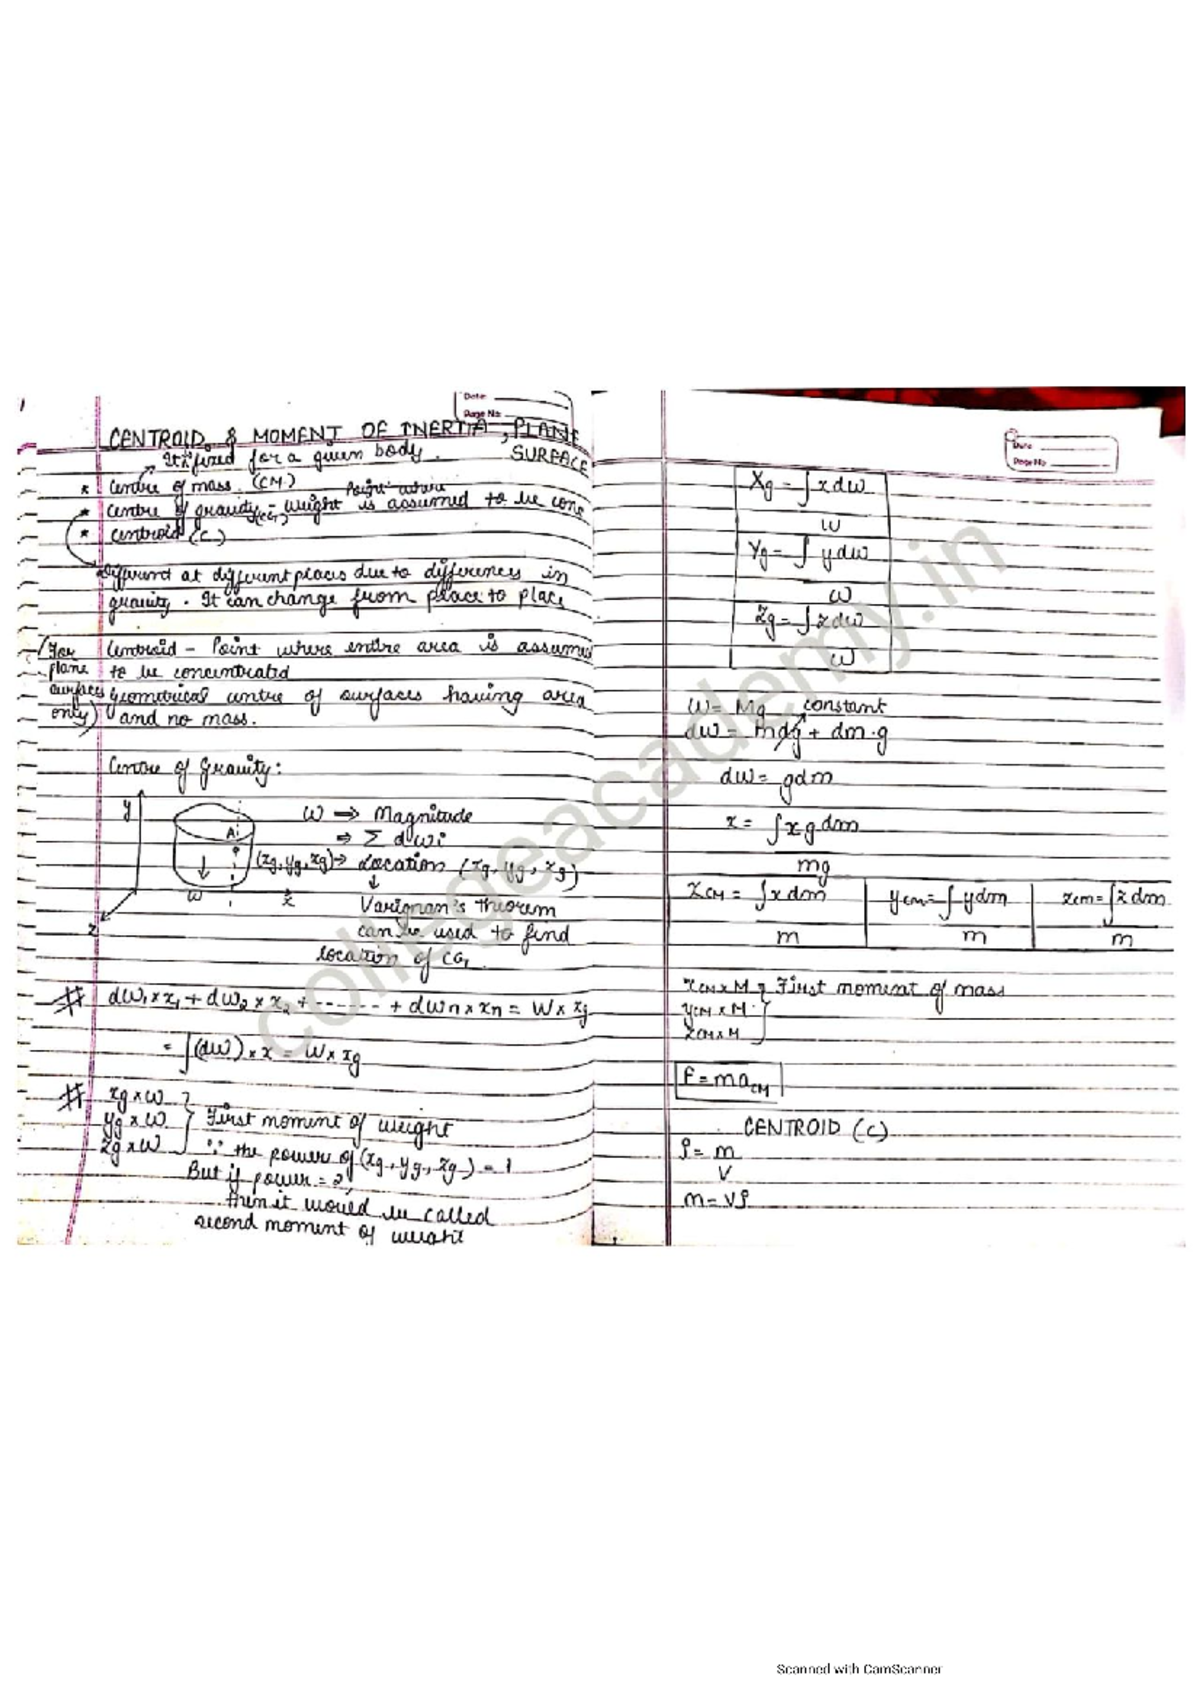 Date
Page No
CENTROID & MOMENT OF INERTIA, PLANE
SURFACE
It is fixed for a given body.
* Centre of mass (CM)
Point where
* Centre of gravity - weight is assumed to be conc
(CG)
* Centroid (C)
Different at different places due to differences in
gravity. It can change from place to place
(For plane surfaces only)
Centroid - Point where entire area is assumed
to be concentrated
Geometrical centre of surfaces having area
and no mass.
Centre of Gravity:
y
A
W
x
z
W ⇒ Magnitude
⇒ Σ dwi
(xg, yg, zg) → Location (xg, yg, zg)
↓
Varignan's theorem
can be used to find
location of CG.
# dw1 × x1 + dw2 × x2 + ------ + dwn × xn = W × xg
= ∫(dw) × x = W × xg
# xg × W
yg × W } First moment of weight
zg × W
∵ the power of (xg, yg, zg) = 1
But if power = 2,
then it would be called
second moment of weight
Date
Page No
Xg = ∫x dw
w
Yg = ∫ y dw
w
Zg = ∫ z dw
w
W = Mg constant
dw = mdg + dm·g
dw = gdm
x = ∫x g dm
mg
xCM = ∫x dm
m
yCM = ∫ y dm
m
zCM = ∫z dm
m
xCM × M } First moment of mass
yCM × M
zCM × M
F = maCM
CENTROID (C)
ρ = m
V
m = Vρ
collegeacademy.in
Scanned with CamScanner